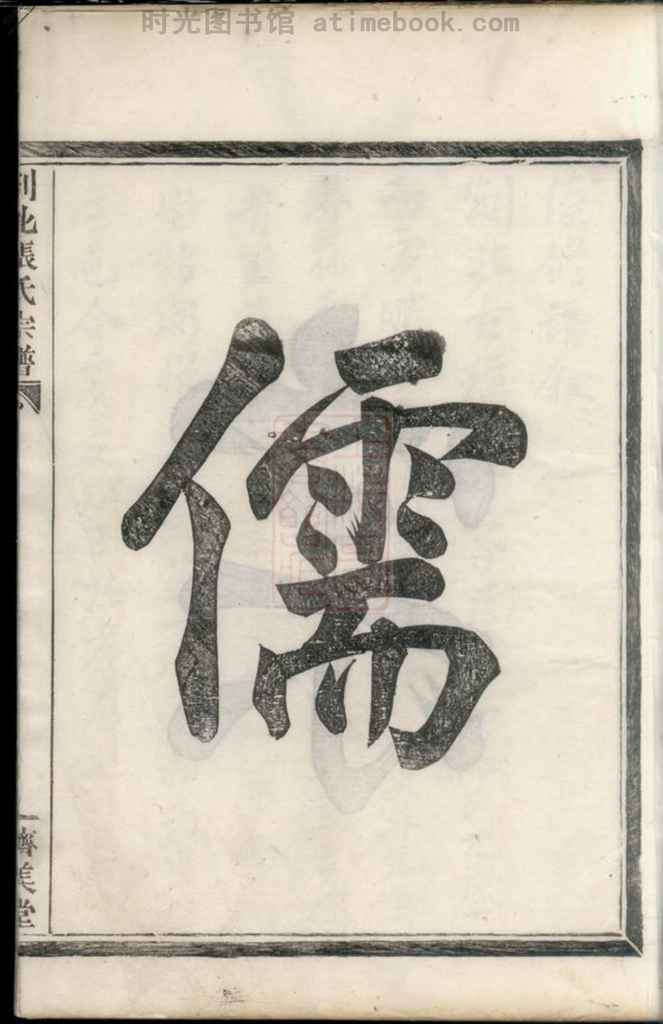 时光图书馆 atimebook.com
儒
張氏宗譜
一
濟美堂